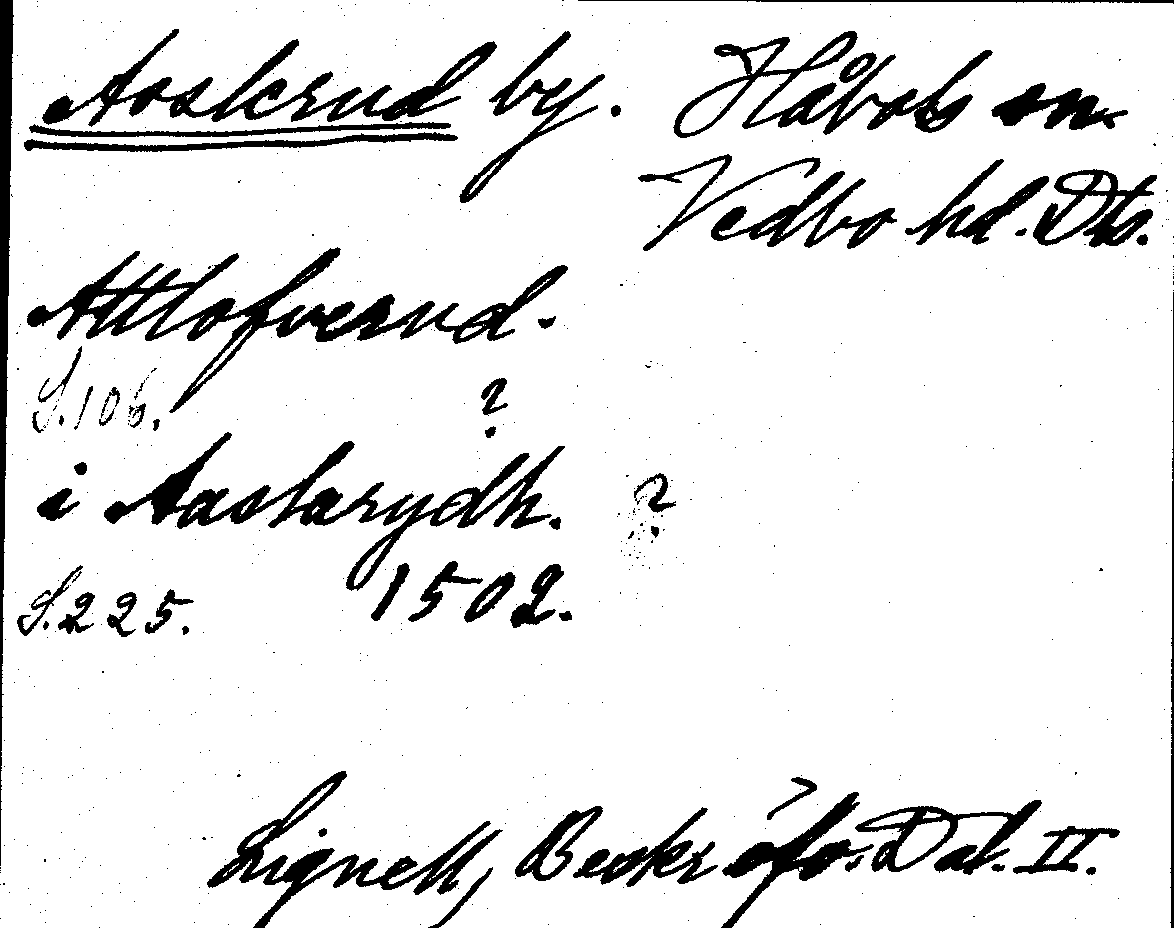 Aoskrud by. Håbols sn.
Vedbo hd. Dls.
Attlofverud.
S. 106. ?
i Aaslarydh. ?
S. 225. 1502.
Lignell, Beskr. öfv. Dal. II.